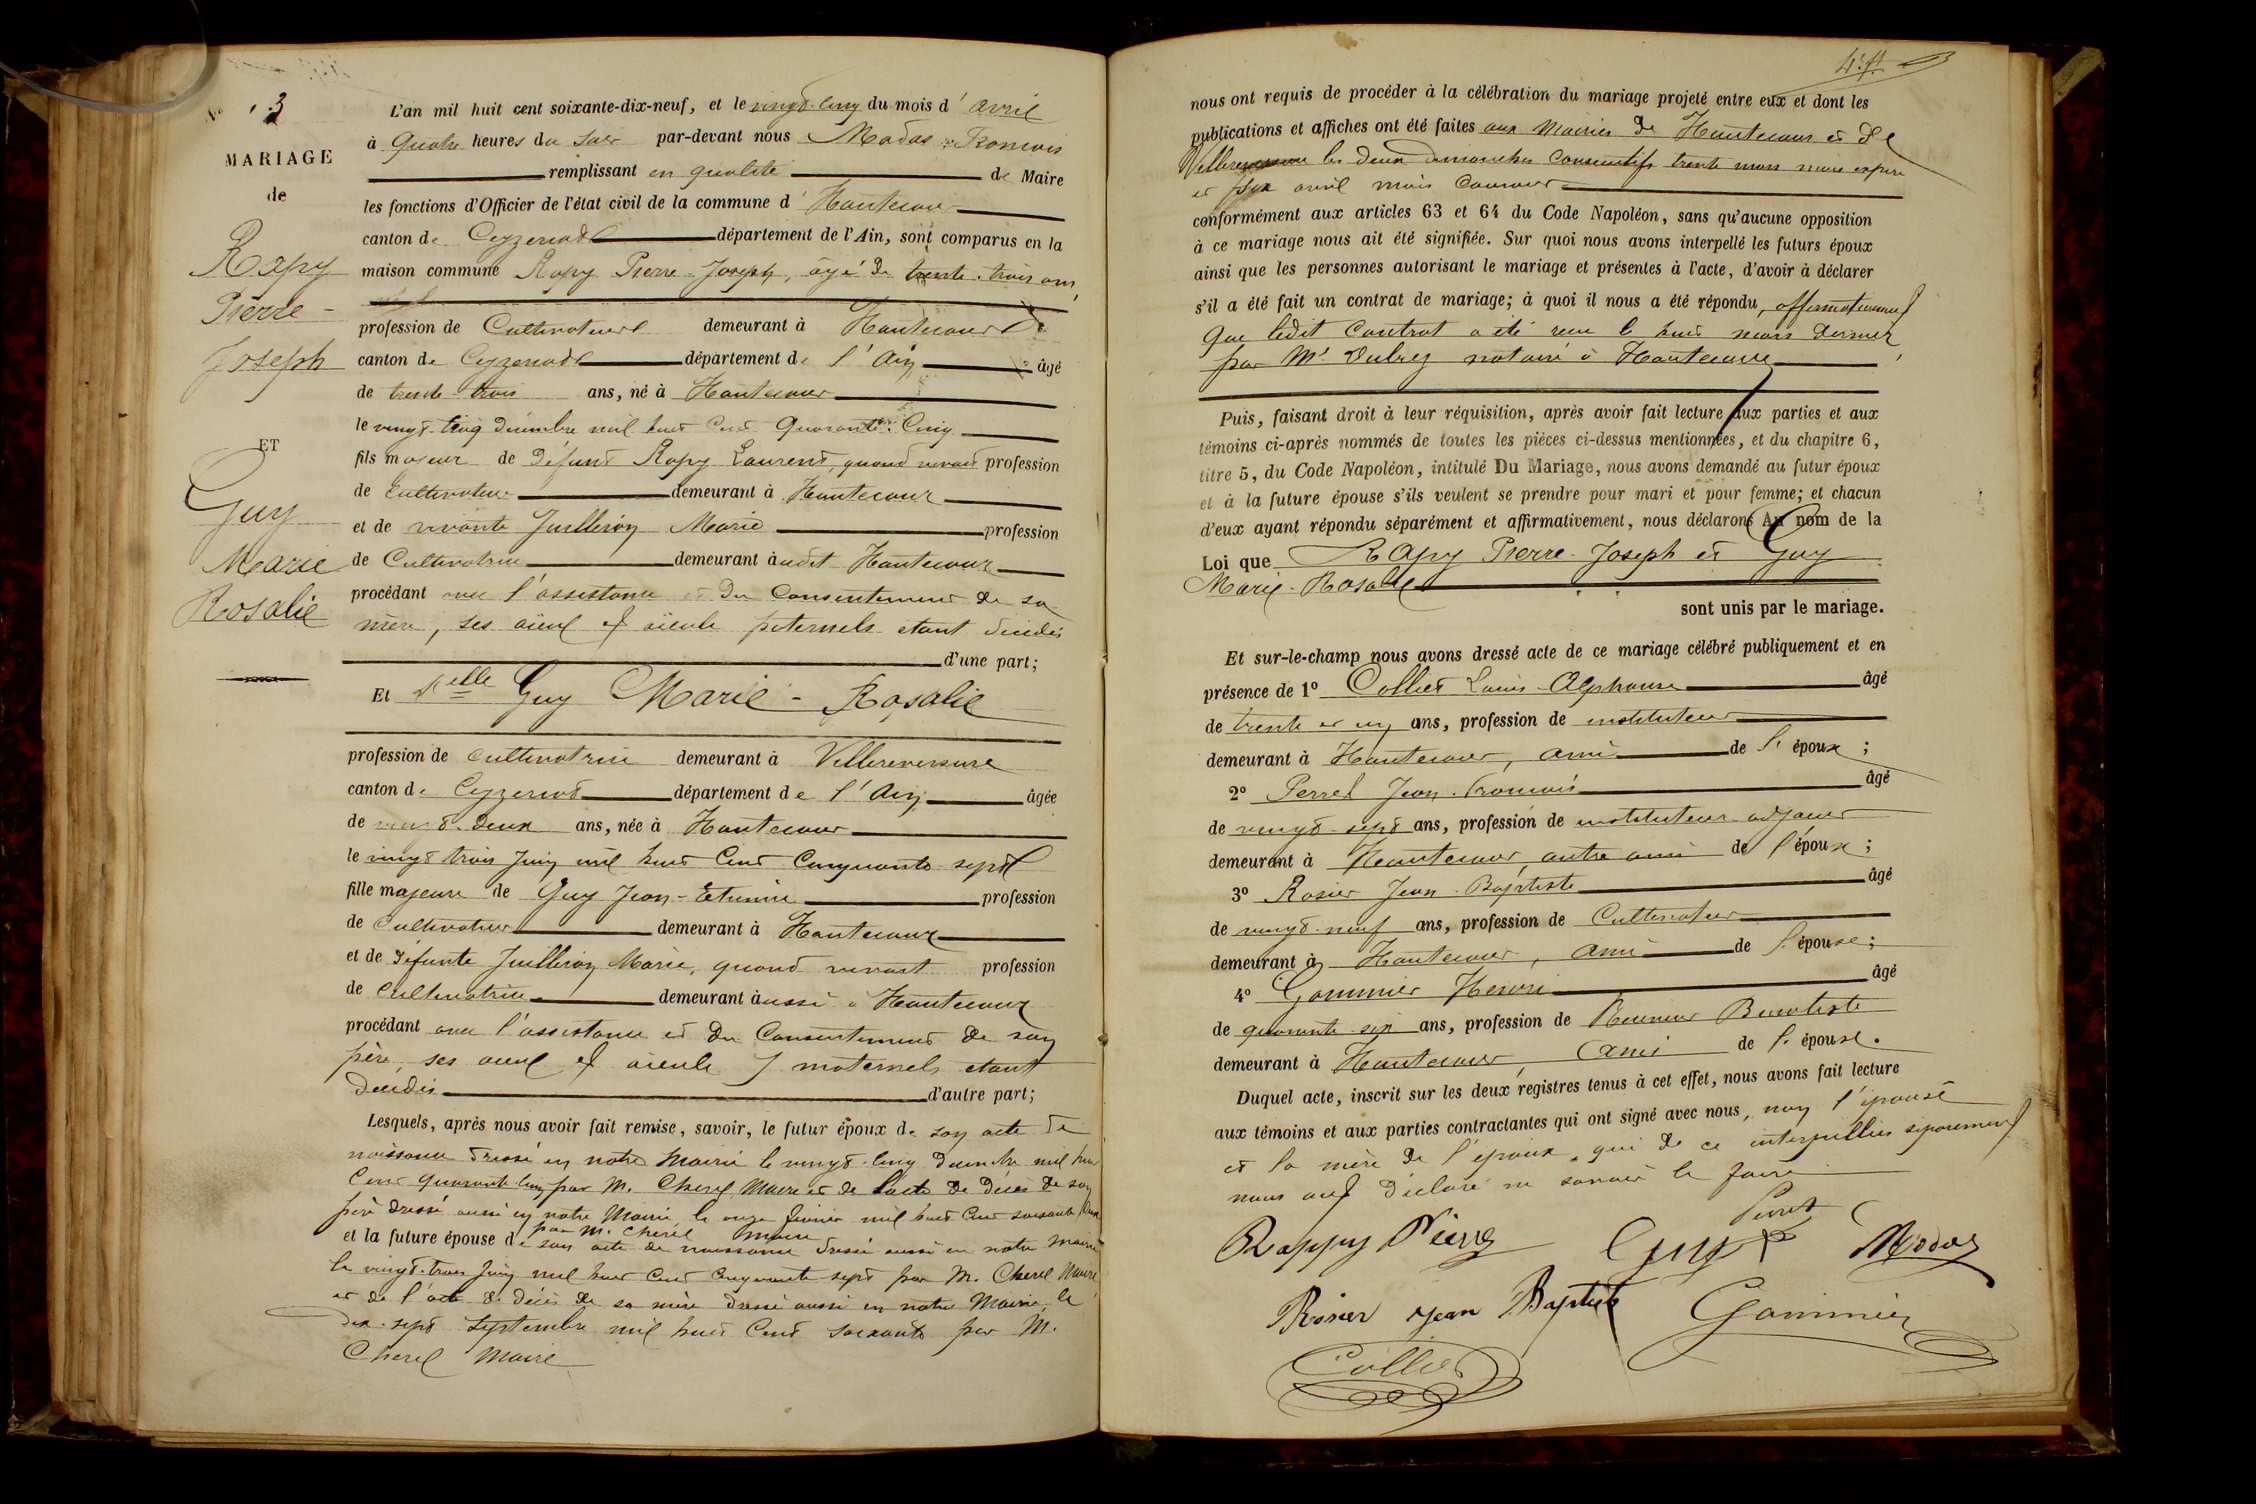 N° 3
MARIAGE
de
Rapy
Pierre-
Joseph
ET
Guy
Marie
Rosalie
L'an mil huit cent soixante-dix-neuf, et le vingt-cinq du mois d'avril
à Quatre heures du soir par-devant nous Modas François
remplissant en qualité de Maire
les fonctions d'Officier de l'état civil de la commune d'Hautecour
canton de Ceyzeriat département de l'Ain, sont comparus en la
maison commune Rapy Pierre-Joseph, âgé de trente-trois ans,
profession de Cultivateur demeurant à Hautecour
canton de Ceyzeriat département de l'Ain âgé
de trente-trois ans, né à Hautecour
le vingt-cinq décembre mil huit cent quarante-cinq
fils majeur de défunt Rapy Laurent, quand vivait profession
de cultivateur demeurant à Hautecour
et de vivante Juilleron Marie profession
de Cultivatrice demeurant audit Hautecour
procédant avec l'assistance et du consentement de sa
mère, ses aïeul et aïeule paternels étant décédés
d'une part;
Et Delle Guy Marie-Rosalie
profession de cultivatrice demeurant à Villereversure
canton de Ceyzeriat département de l'Ain âgée
de vingt-deux ans, née à Hautecour
le vingt trois Juin mil huit cent cinquante-sept
fille majeure de Guy Jean-Etienne profession
de Cultivateur demeurant à Hautecour
et de défunte Juilleron Marie, quand vivait profession
de cultivatrice demeurant aussi à Hautecour
procédant avec l'assistance et du consentement de son
père, ses aïeul et aïeule maternels étant
décédés d'autre part;
Lesquels, après nous avoir fait remise, savoir, le futur époux de son acte de
naissance dressé en notre Mairie le vingt-cinq décembre mil huit
cent quarante-cinq par M. Cherel Maire et de l'acte de décès de son
père dressé aussi en notre Mairie le onze février mil huit cent soixante
par M. Cherel Maire
et la future épouse de son acte de naissance dressé aussi en notre Mairie
le vingt-trois Juin mil huit cent cinquante-sept par M. Cherel Maire
et de l'acte de décès de sa mère dressé aussi en notre Mairie, le
dix-sept septembre mil huit cent soixante par M.
Cherel Maire
nous ont requis de procéder à la célébration du mariage projeté entre eux et dont les
publications et affiches ont été faites aux Mairies de Hautecour et de
Villereversure les deux dimanches consécutifs trente mars mois expiré
et six avril mois courant
conformément aux articles 63 et 64 du Code Napoléon, sans qu'aucune opposition
à ce mariage nous ait été signifiée. Sur quoi nous avons interpellé les futurs époux
ainsi que les personnes autorisant le mariage et présentes à l'acte, d'avoir à déclarer
s'il a été fait un contrat de mariage; à quoi il nous a été répondu, affirmativement
que ledit contrat a été reçu le huit mars dernier
par Me Dubrey notaire à Hautecour
Puis, faisant droit à leur réquisition, après avoir fait lecture aux parties et aux
témoins ci-après nommés de toutes les pièces ci-dessus mentionnées, et du chapitre 6,
titre 5, du Code Napoléon, intitulé Du Mariage, nous avons demandé au futur époux
et à la future épouse s'ils veulent se prendre pour mari et pour femme; et chacun
d'eux ayant répondu séparément et affirmativement, nous déclarons Au nom de la
Loi que Rapy Pierre-Joseph et Guy
Marie-Rosalie
sont unis par le mariage.
Et sur-le-champ nous avons dressé acte de ce mariage célébré publiquement et en
présence de 1° Collet Louis-Alphonse âgé
de trente et un ans, profession de instituteur
demeurant à Hautecour, ami de l'époux;
2° Perret Jean-François âgé
de vingt-sept ans, profession de instituteur-adjoint
demeurant à Hautecour, autre ami de l'époux;
3° Rosier Jean-Baptiste âgé
de vingt-neuf ans, profession de Cultivateur
demeurant à Hautecour, ami de l'épouse;
4° Gommier Henri âgé
de quarante-six ans, profession de Receveur Buraliste
demeurant à Hautecour ami de l'épouse.
Duquel acte, inscrit sur les deux registres tenus à cet effet, nous avons fait lecture
aux témoins et aux parties contractantes qui ont signé avec nous, non l'épouse
et la mère de l'époux, qui de ce interpellées séparément
nous ont déclaré ne savoir le faire
Perret
Rappy Pierre Guy Modas
Rosier Jean Baptiste Gommier
Collet